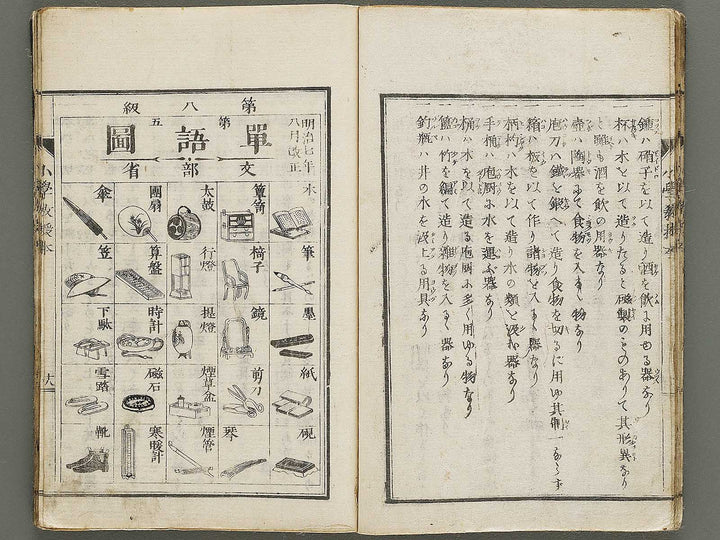 鍾ハ硝子を以て造り酒を飲む用ゐる器なり
杯ハ木を以て造りたると磁製のものありて其形異なり
と雖も酒を飲の用器なり
壺ハ陶器にて食物を入るゝ物なり
庖刀ハ鐵と鋼へて造り食物を切るに用ゆ其制一ならず
箱ハ板を以て作り諸物を入るゝ器なり
柄杓ハ木を以て造り水の類を汲む器なり
手桶ハ庖厨に水を運ぶ器なり
桶ハ木を以て造る庖厨に多く用ゆる物なり
籃ハ竹を編て造り雜物を入るゝ器なり
釣瓶ハ井の水を汲上る用具なり
第八級
明治七年
八月改正
第五
單語圖
文部省
本
筆
墨
紙
硯
簞笥
椅子
鏡
剪刀
琴
太鼓
行燈
提燈
煙草盆
煙管
團扇
算盤
時計
磁石
寒暖計
傘
笠
下駄
雪踏
靴